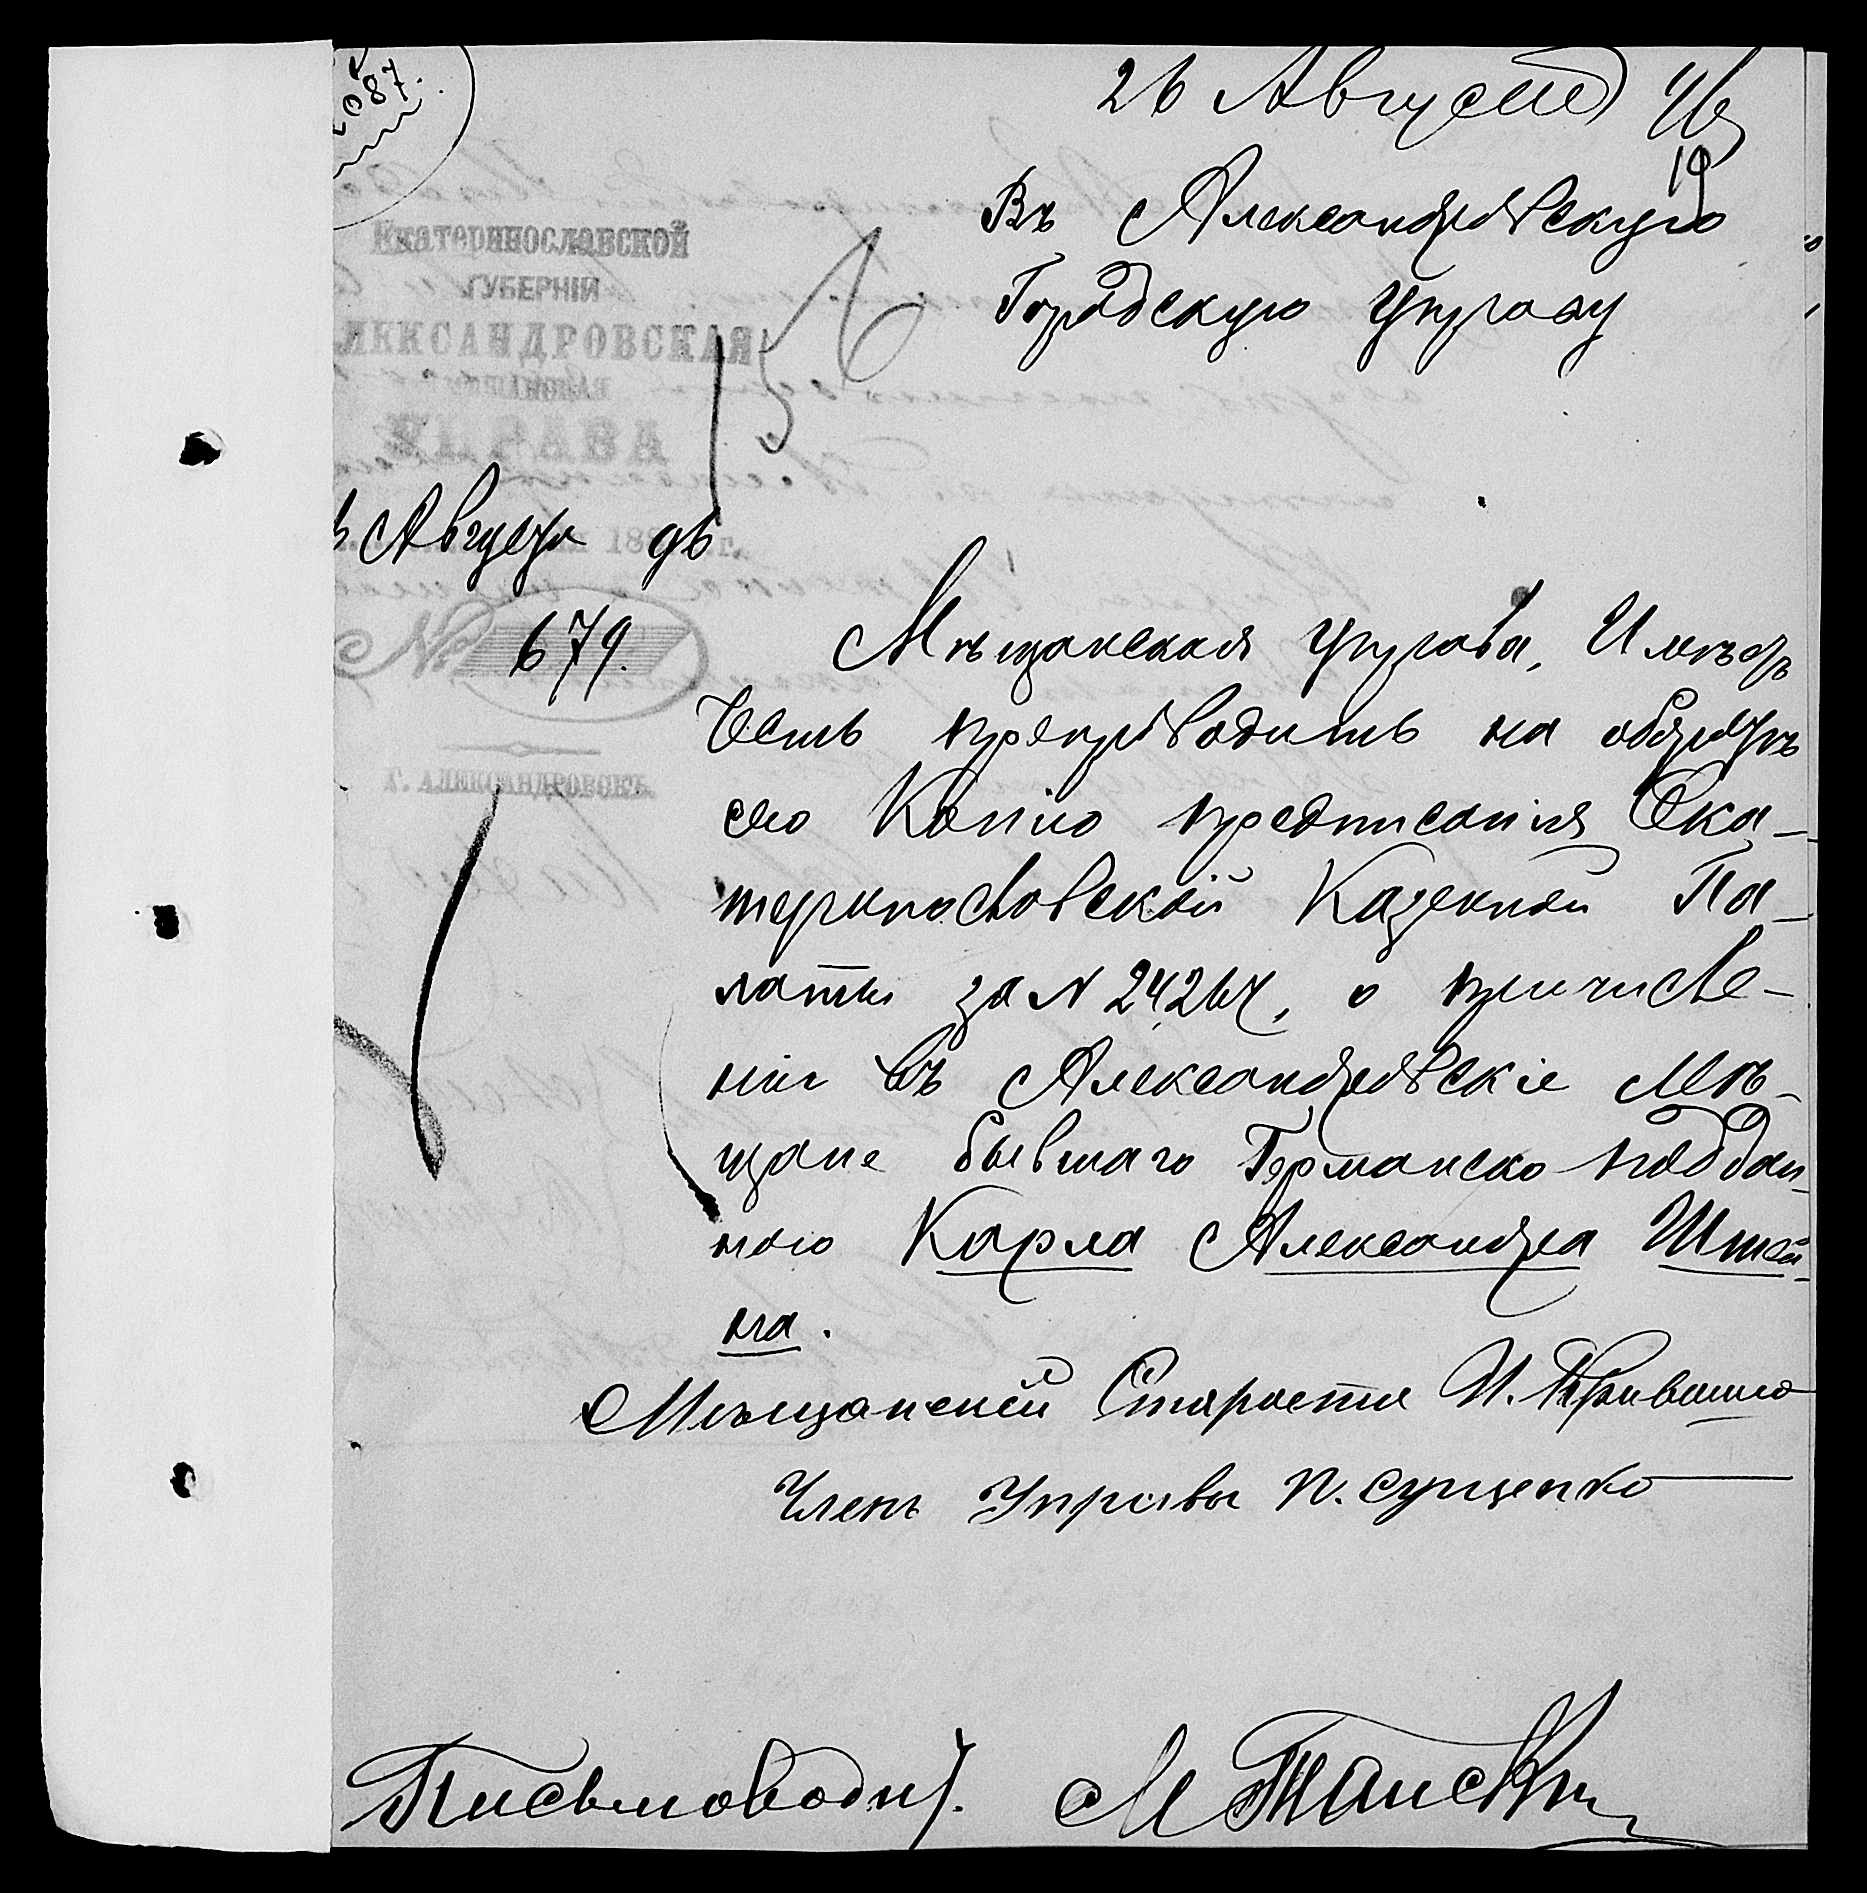 087.
26 Августа 96
19
Въ Александровскую
Городскую Управу
Екатеринославской
ГУБЕРНІИ
ЛЕКСАНДРОВСКАЯ
МѢЩАНСКАЯ
УПРАВА
Августа 96 г.
№ 679.
Г. АЛЕКСАНДРОВСКЪ.
Мѣщанская Управа, Имѣетъ
Честь препроводить на
сію Копію предписанія Ека-
теринославской Казенной Па-
латы за N 24264, о причисле-
ніи въ Александровскіе Мѣ-
щане бывшаго Германско поддан-
наго Карла Александра Штей-
на.
Мѣщанскій Староста И.
Членъ Управы П. Сущенко
Письмоводит. М